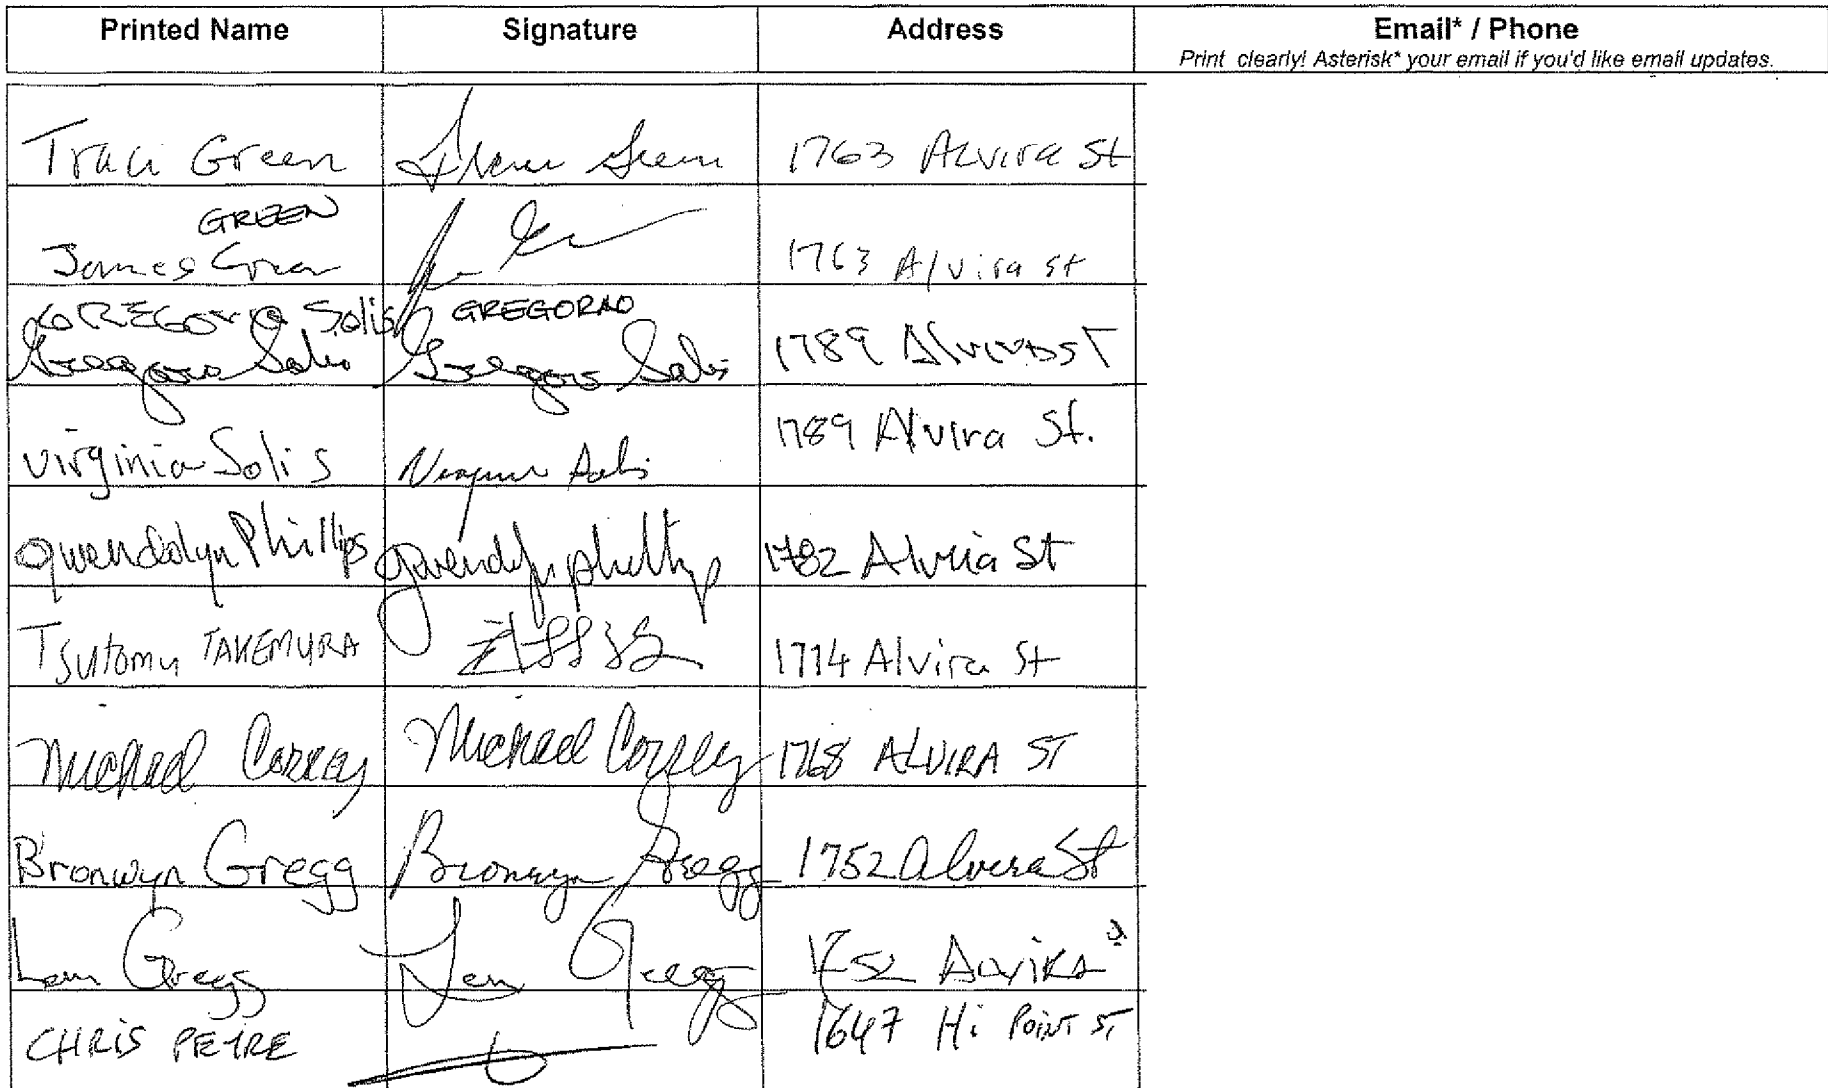 Printed Name Signature Address Email* / Phone
Print clearly! Asterisk* your email if you'd like email updates.
Traci Green 1763 Alvira St
GREEN
James Green 1763 Alvira st
GREGORIO Solis GREGORAO
Gregorio Solis Gregorio Solis 1789 Alvira ST
virginia Solis Virginia Solis 1789 Alvira St.
gwendolyn Phillips gwendolyn phillips 1782 Alvira St
Tsutomu TAKEMURA 1714 Alvira St
Michael Michael 1768 ALVIRA ST
Bronwyn Gregg Bronwyn Gregg 1752 Alvera St
Len Gregg Len Gregg 1752 Alvira
CHRIS PETRE 1647 Hi Point ST